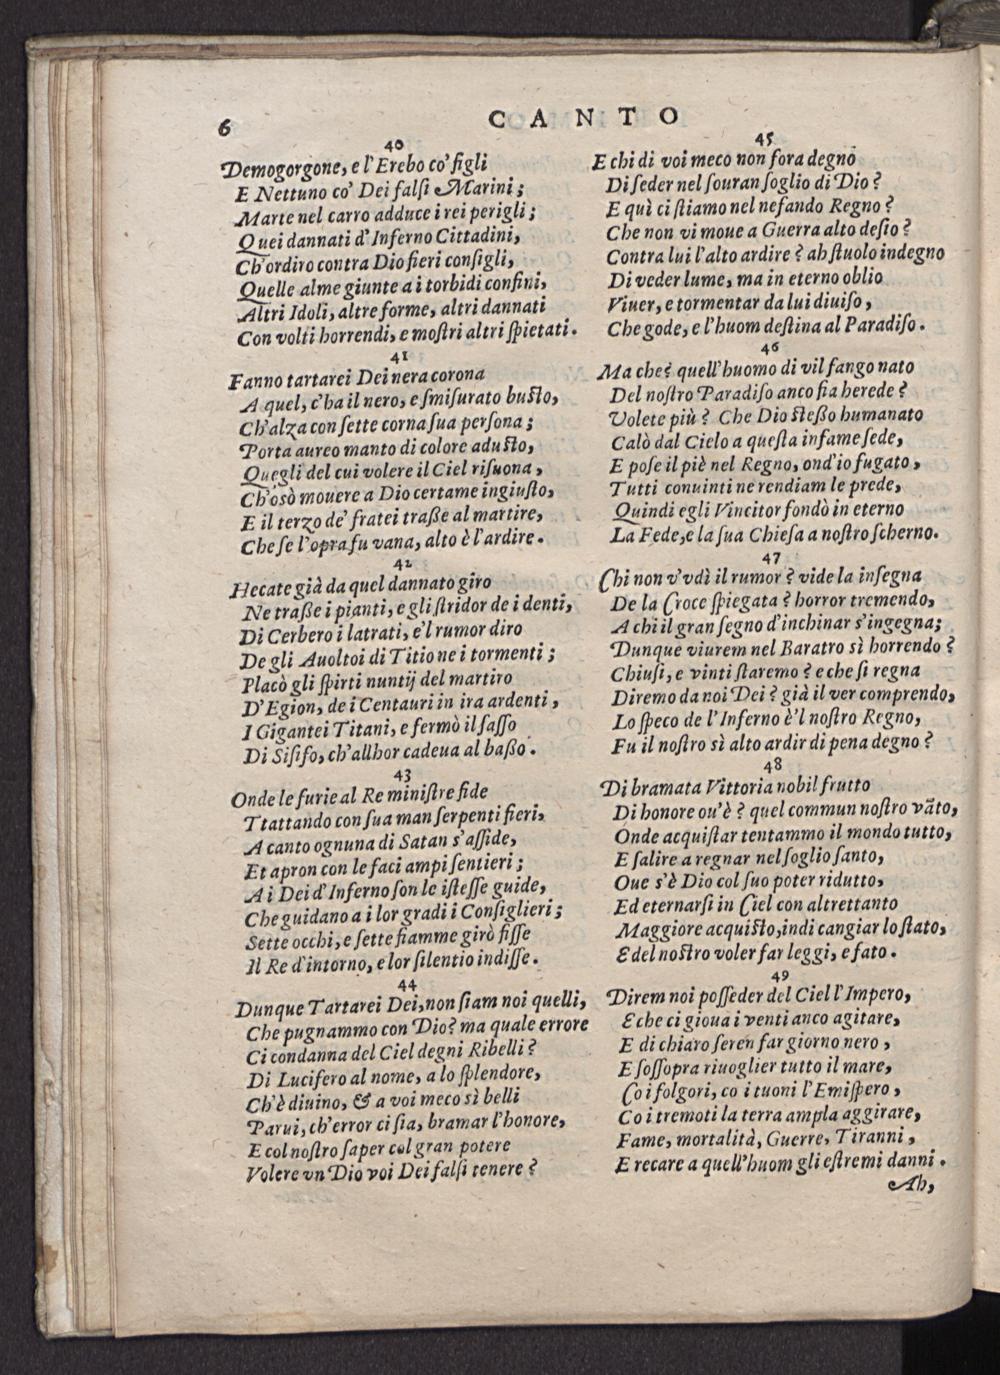 6
CANTO
40
Demogorgone, e l'Erebo co' figli
E Nettuno co' Dei falſi Marini;
Marte nel carro adduce i rei perigli;
Quei dannati d'Inferno Cittadini,
Ch'ordiro contra Dio fieri conſigli,
Quelle alme giunte a i torbidi confini,
Altri Idoli, altre forme, altri dannati
Con volti horrendi, e moſtri altri ſpietati.
41
Fanno tartarei Dei nera corona
A quel, c'ha il nero, e ſmiſurato buſto,
Ch'alza con ſette corna ſua perſona;
Porta aureo manto di colore aduſto,
Quegli del cui volere il Ciel riſuona,
Ch'osò mouere a Dio certame ingiuſto,
E il terzo de' fratei traße al martire,
Che ſe l'opra fu vana, alto è l'ardire.
42
Hecate già da quel dannato giro
Ne traße i pianti, e gli ſtridor de i denti,
Di Cerbero i latrati, e'l rumor diro
De gli Auoltoi di Titio ne i tormenti;
Placò gli ſpirti nuntij del martiro
D'Egion, de i Centauri in ira ardenti,
I Gigantei Titani, e fermò il ſaſſo
Di Siſifo, ch'allhor cadeua al baßo.
43
Onde le furie al Re miniſtre fide
Ttattando con ſua man ſerpenti fieri,
A canto ognuna di Satan s'aſſide,
Et apron con le faci ampi ſentieri;
A i Dei d'Inferno ſon le iſteſſe guide,
Che guidano a i lor gradi i Conſiglieri;
Sette occhi, e ſette fiamme girò fiſſe
Il Re d'intorno, e lor ſilentio indiſſe.
44
Dunque Tartarei Dei, non ſiam noi quelli,
Che pugnammo con Dio? ma quale errore
Ci condanna del Ciel degni Ribelli?
Di Lucifero al nome, a lo ſplendore,
Ch'è diuino, & a voi meco sì belli
Parui, ch'error ci ſia, bramar l'honore,
E col noſtro ſaper col gran potere
Volere vn Dio voi Dei falſi tenere?
45
E chi di voi meco non fora degno
Di ſeder nel ſouran ſoglio di Dio?
E quì ci ſtiamo nel nefando Regno?
Che non vi moue a Guerra alto deſio?
Contra lui l'alto ardire? ah ſtuolo indegno
Di veder lume, ma in eterno oblio
Viuer, e tormentar da lui diuiſo,
Che gode, e l'huom deſtina al Paradiſo.
46
Ma che? quell'huomo di vil fango nato
Del noſtro Paradiſo anco fia herede?
Volete più? Che Dio ſteßo humanato
Calò dal Cielo a queſta infame ſede,
E poſe il piè nel Regno, ond'io fugato,
Tutti conuinti ne rendiam le prede,
Quindi egli Vincitor fondò in eterno
La Fede, e la ſua Chieſa a noſtro ſcherno.
47
Chi non v'vdì il rumor? vide la inſegna
De la Croce ſpiegata? horror tremendo,
A chi il gran ſegno d'inchinar s'ingegna;
Dunque viurem nel Baratro sì horrendo?
Chiuſi, e vinti ſtaremo? e che ſi regna
Diremo da noi Dei? già il ver comprendo,
Lo ſpeco de l'Inferno è'l noſtro Regno,
Fu il noſtro sì alto ardir di pena degno?
48
Di bramata Vittoria nobil frutto
Di honore ou'è? quel commun noſtro vāto,
Onde acquiſtar tentammo il mondo tutto,
E ſalire a regnar nel ſoglio ſanto,
Oue s'è Dio col ſuo poter ridutto,
Ed eternarſi in Ciel con altrettanto
Maggiore acquiſto, indi cangiar lo ſtato,
E del noſtro voler far leggi, e fato.
49
Direm noi poſſeder del Ciel l'Impero,
E che ci gioua i venti anco agitare,
E di chiaro ſeren far giorno nero,
E ſoſſopra riuoglier tutto il mare,
Co i folgori, co i tuoni l'Emiſpero,
Co i tremoti la terra ampla aggirare,
Fame, mortalità, Guerre, Tiranni,
E recare a quell'huom gli eſtremi danni.
Ah,